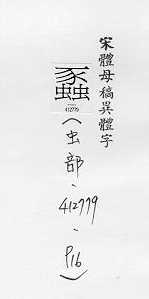 宋體母稿異體字
412779
(虫部、412779、P16)